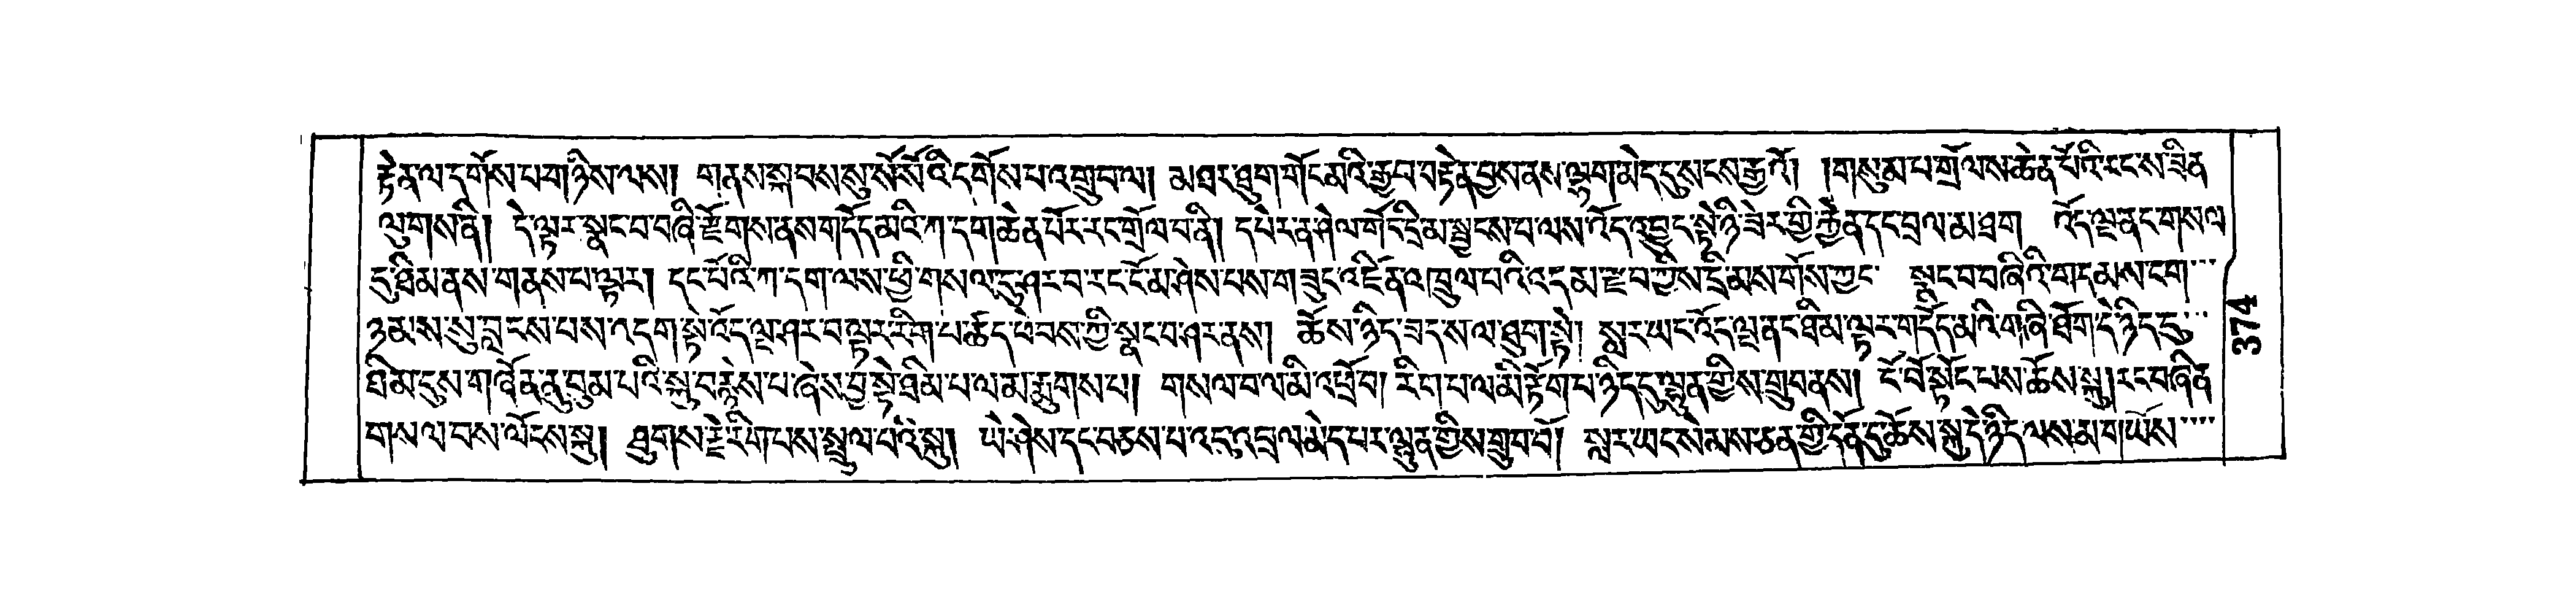 རྟེན་ལ་དགོས་པ་གཉིས་ལས། གནས་སྐབས་སུ་སོ་སོའི་དགོས་པ་འགྲུབ་ལ། མཐར་ཐུག་གོང་མའི་རྒྱབ་བརྟེན་བྱས་ནས་ལྷག་མེད་དུ་སངས་རྒྱའོ། །གསུམ་པ་གྲོལ་ས་ཆེན་པོའི་རང་ས་ཟིན་
ལུགས་ནི། དེ་ལྟར་སྣང་བ་བཞི་རྫོགས་ནས་གདོད་མའི་ཀ་དག་ཆེན་པོར་རང་གྲོལ་བ་ནི། དཔེར་ན་ཤེལ་གོང་དྲི་མ་སྦྱངས་པ་ལས་འོད་འབྱུང་སྟེ་ཉི་ཟེར་གྱི་རྐྱེན་དང་བྲལ་མ་ཐག འོད་ལྔ་ནང་གསལ་
དུ་ཐིམ་ནས་གནས་པ་ལྟར། དང་པོའི་ཀ་དག་ལས་ཕྱི་གསལ་དུ་ཤར་བ་རང་ངོ་མ་ཤེས་པས་གཟུང་འཛིན་འཁྲུལ་པའི་འདམ་རྫབ་ཀྱིས་དྲི་མས་གོས་ཀྱང་ སྣང་བ་བཞིའི་གདམས་ངག་
ཉམས་སུ་བླངས་པས་འདག་སྟེ་འོད་ལྔ་ཤར་བ་ལྟར་རིག་པ་ཚད་ཕེབས་ཀྱི་སྣང་བ་ཤར་ནས། ཆོས་ཉིད་ཟད་ས་ལ་ཐུག་སྟེ། སླར་ཡང་འོད་ལྔ་ནང་ཐིམ་ལྟར་གདོད་མའི་གཞི་ཐོག་དེ་ཉིད་དུ་
ཐིམ་དུས་གཞོན་ནུ་བུམ་པའི་སྐུ་བརྙེས་པ་ཞེས་བྱ་སྟེ་ཐིམ་པ་ལ་མ་རྨུགས་པ། གསལ་བ་ལ་མི་འཕྲོ་བ། རིག་པ་ལ་མི་རྟོག་པ་ཉིད་དུ་ལྷུན་གྱིས་གྲུབ་ནས། ངོ་བོ་སྟོང་པས་ཆོས་སྐུ། རང་བཞིན་
གསལ་བས་ལོངས་སྐུ། ཐུགས་རྗེ་རིག་པས་སྤྲུལ་པའི་སྐུ། ཡེ་ཤེས་དང་བཅས་པ་འདུ་འབྲལ་མེད་པར་ལྷུན་གྱིས་གྲུབ་བོ། སླར་ཡང་སེམས་ཅན་གྱི་དོན་དུ་ཆོས་སྐུ་དེ་ཉིད་ལས་མ་གཡོས་